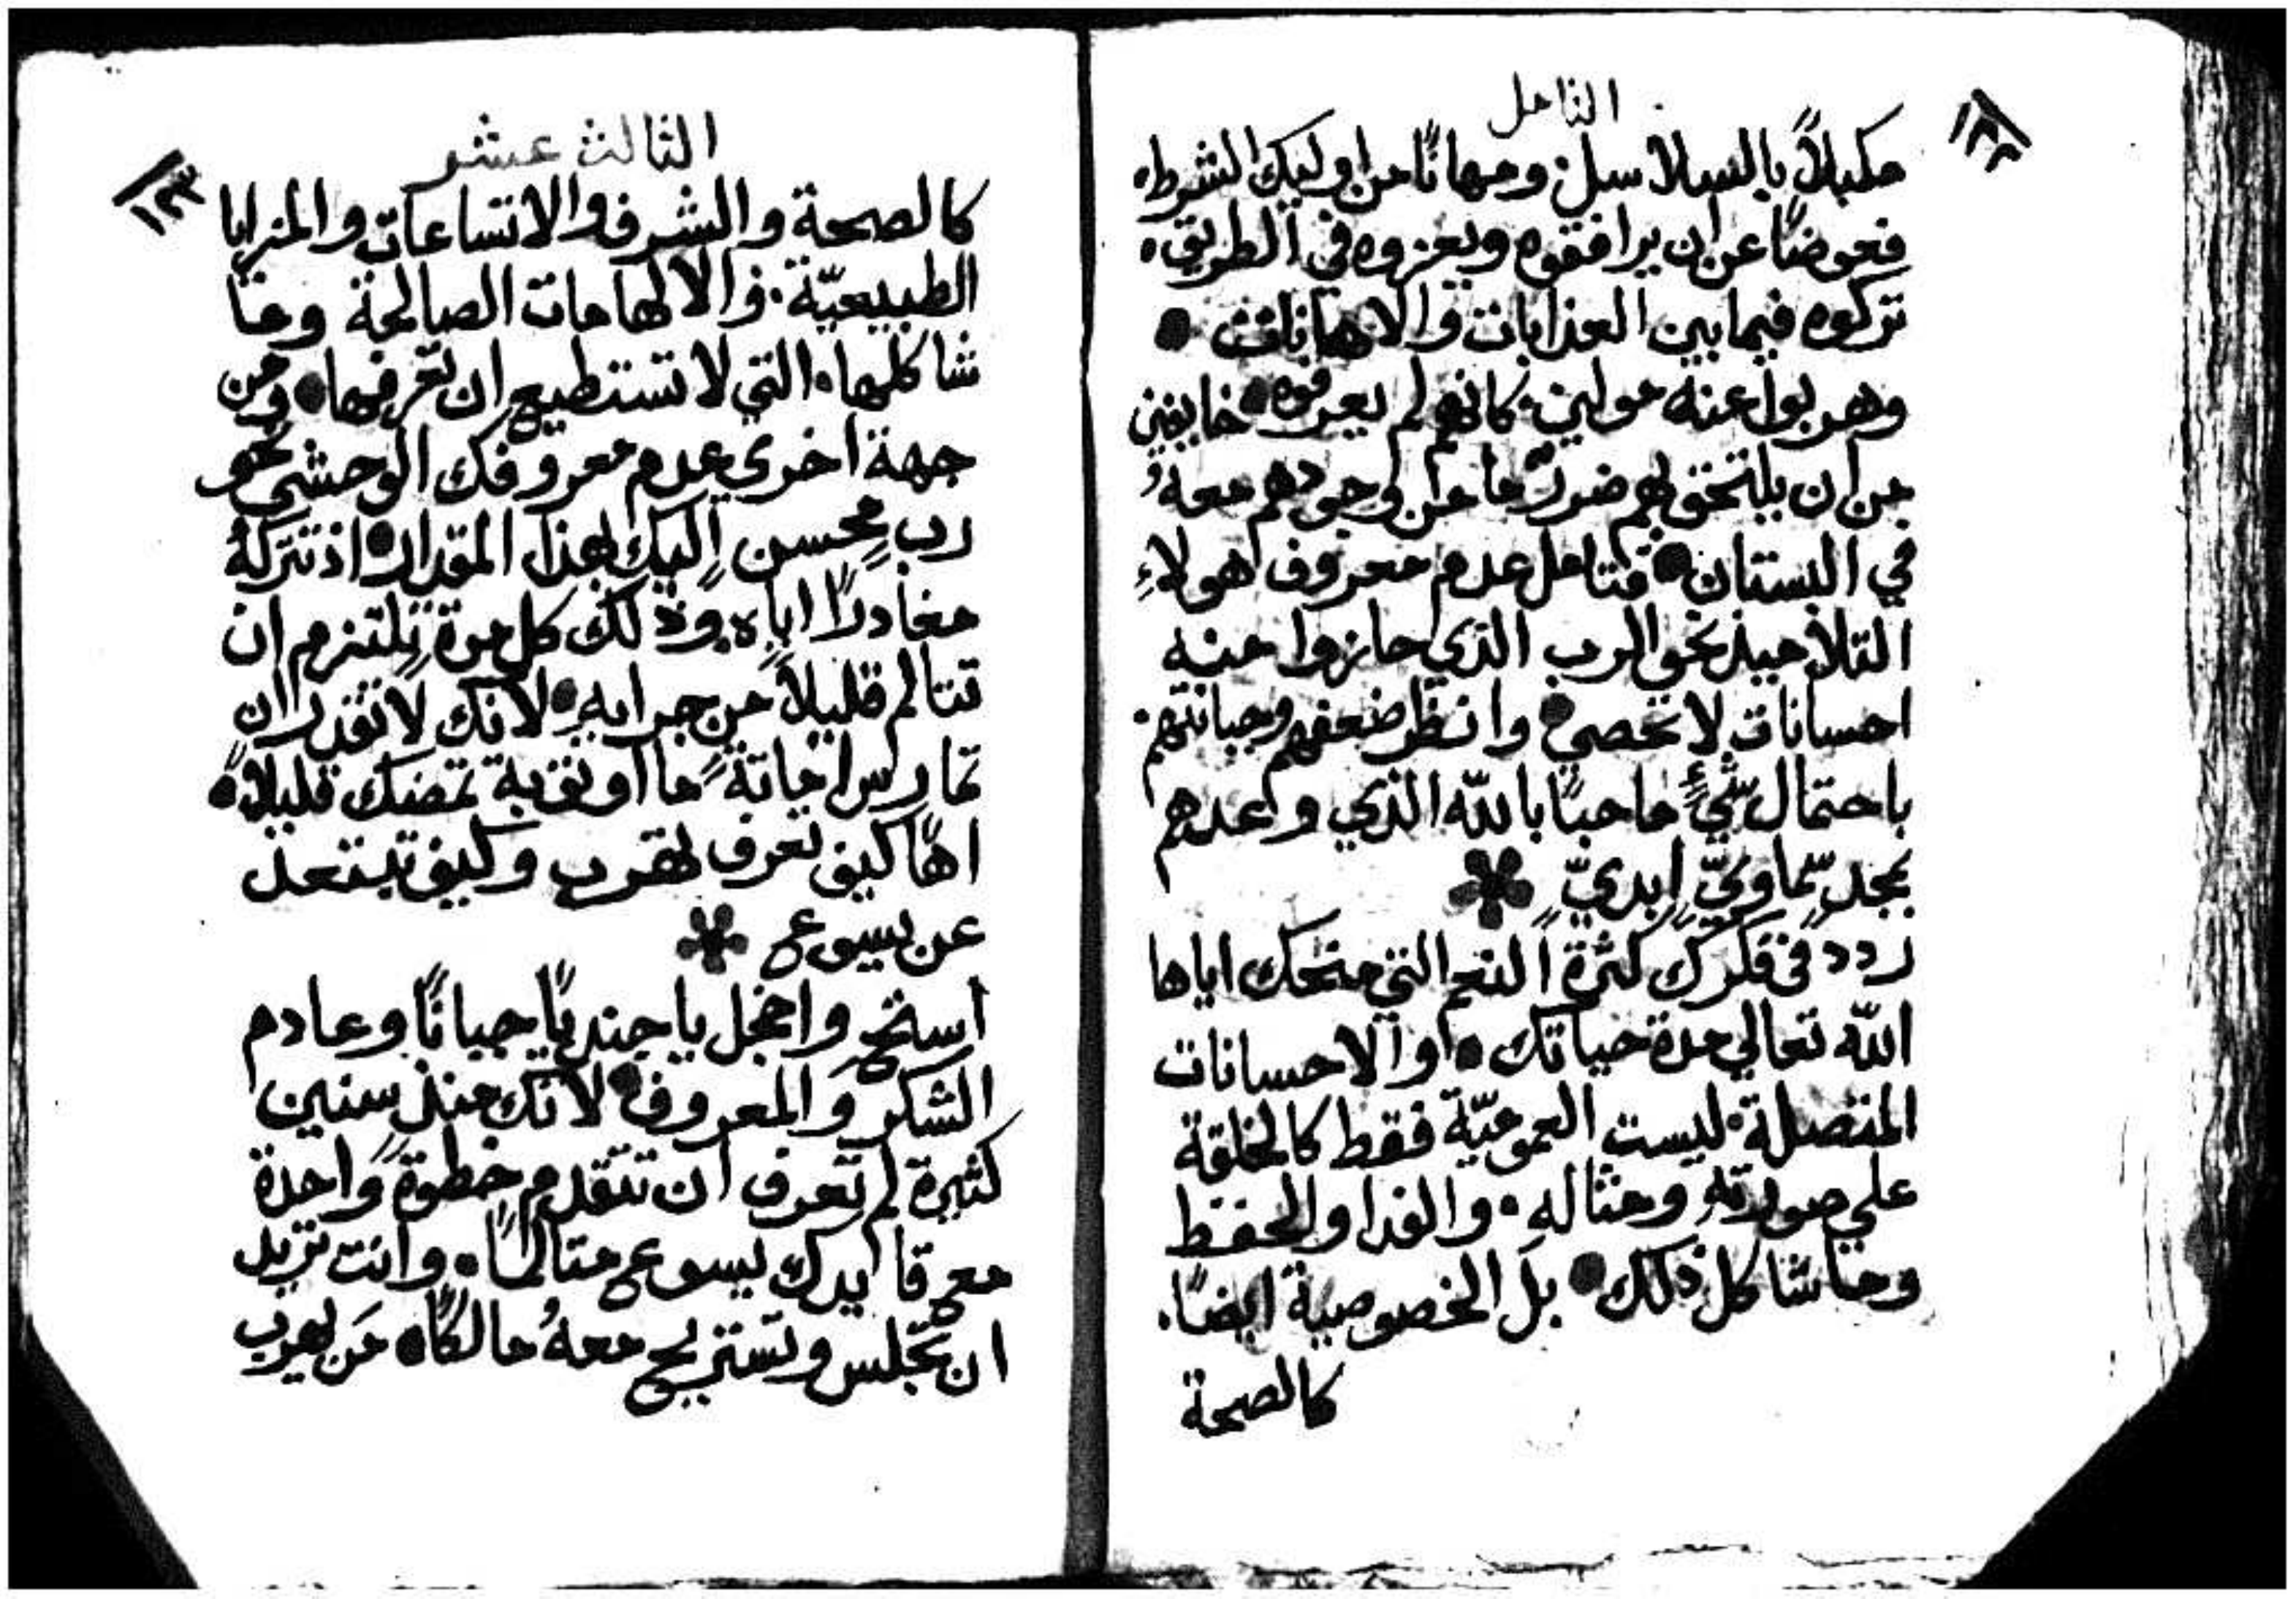 التامل
١٢٢
مكبلاً بالسلاسل. ومهانًا من اوليك الشرط.
فعوضًا عن ان يرافقوه ويعزوه في الطريق.
تركوه فيما بين العذابات والاهانات •
وهربوا عنه مولين. كانهم لم يعرفوه • خايفين
من ان يلتحق بهم ضررٌ ما من وجودهم معهُ
في البستان • فتامل عدم معروف اهولاءِ
التلاميذ نحو الرب الذي حازوا منه
احسانات لا تحصى • وانظر ضعفهم وجبانتهم.
باحتمال شيءٍ ما حبًا بالله الذي وعدهم
بمجدٍ سماويٍّ ابديٍّ
ردد في فكرك كثرة النعم التي منحك اياها
الله تعالي مدة حياتك • او الاحسانات
المتصلة. ليست العموميّة فقط كالخلقة
علي صورتهِ ومثالهِ. والفدا والحفظ
وماشاكل ذلك • بل الخصوصية ايضًا.
كالصحة
الثالث عشر
١٢٣
كالصحة والشرف والاتساعات والمزايا
الطبيعيّة. والالهامات الصالحة وما
شاكلها. التي لا تستطيع ان تعرفها • ومن
جهة اخرى عدم معروفك الوحشي نحو
ربٍ محسن اليك بهذا المقدار • اذ تتركهُ
مغادرًا اياه. وذلك كل مرة تلتزم ان
تتالم قليلاً من جرايهِ • لانك لا تقدر ان
تمارس اماتةً ما او تقربة تمضك قليلاً •
اهًا كيف تعرف تهرب وكيف تبتعد
عن يسوع
استحِ واخجل يا جنديًا جبانًا وعادم
الشكر والمعروف • لانك منذ سنين
كثيرة لم تعرف ان تتقدم خطوةً واحدة
معرقا يدك يسوع متالمًا. وانت تريد
ان تجلس وتستريح معهُ مالكًا • مَن يهرب